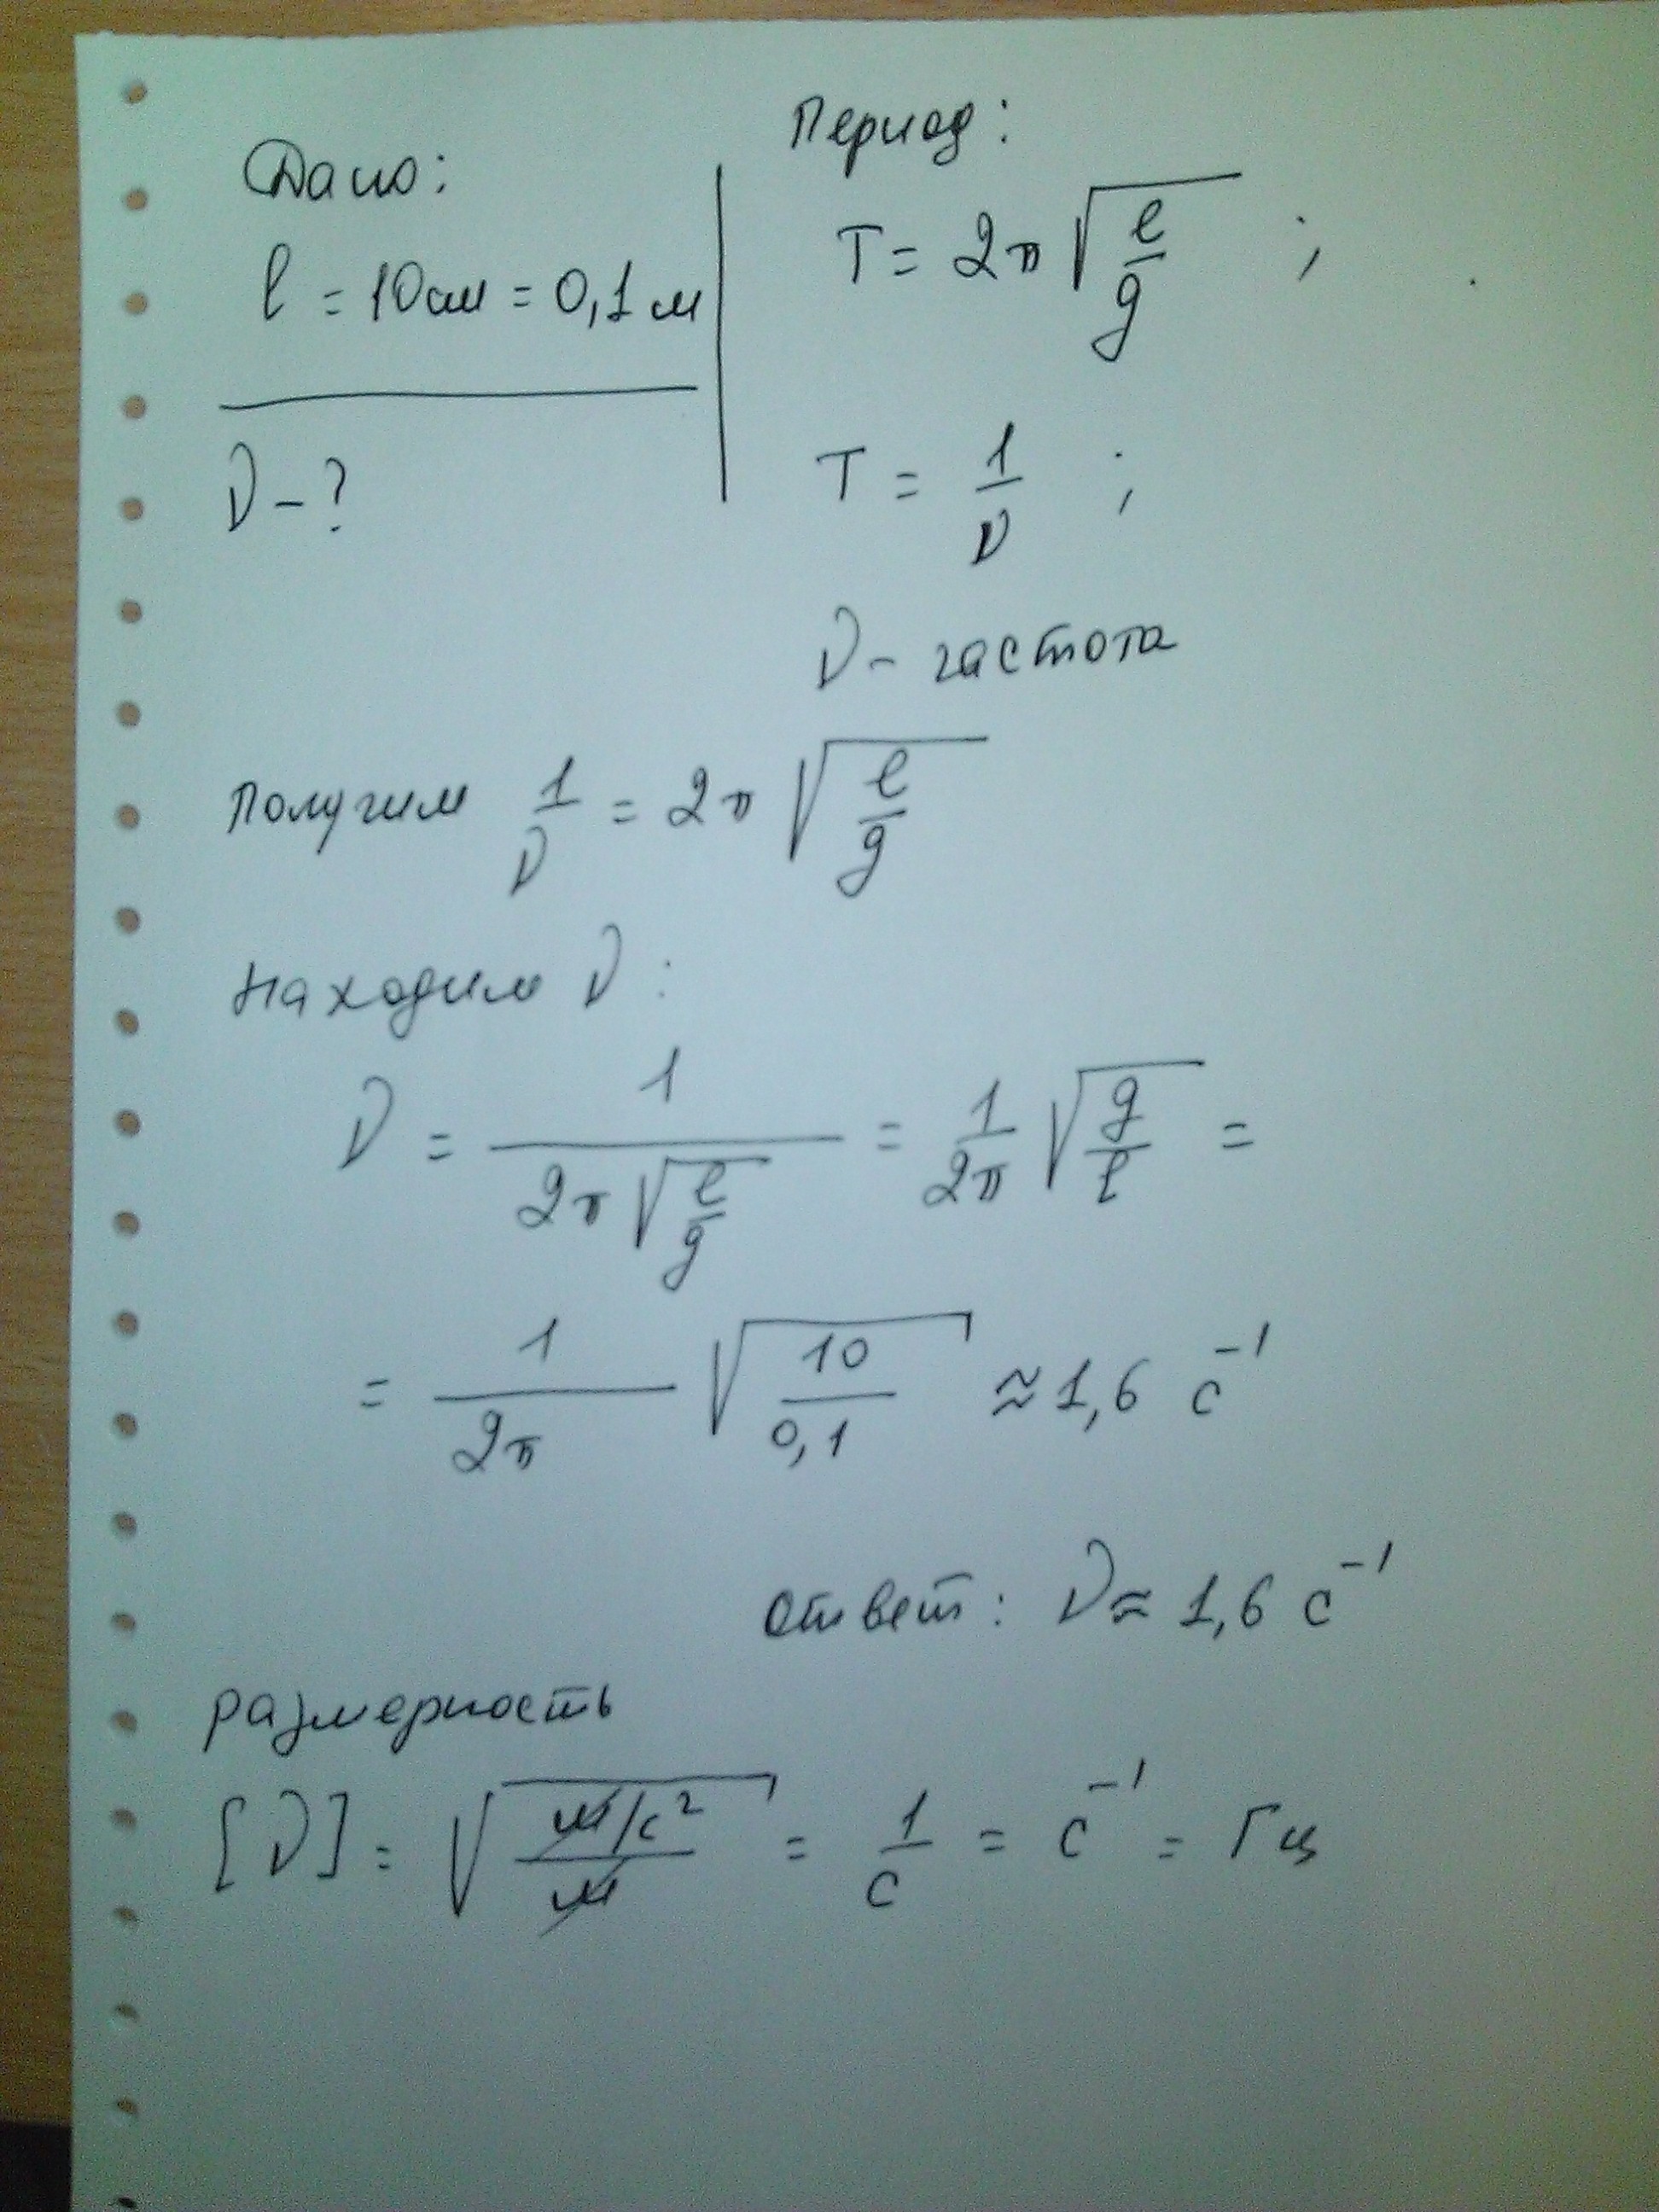 Дано:
l = 10см = 0,1м
ν - ?
Период:
T = 2π √(l/g) ;
T = 1/ν ;
ν - частота
Получим 1/ν = 2π √(l/g)
Находим ν :
ν = 1/(2π√(l/g)) = 1/2π √(g/l) =
= 1/2π √(10/0,1) ≈ 1,6 с⁻¹
Ответ: ν ≈ 1,6 с⁻¹
размерность
[ν] = √((м/с²)/м) = 1/с = с⁻¹ = Гц